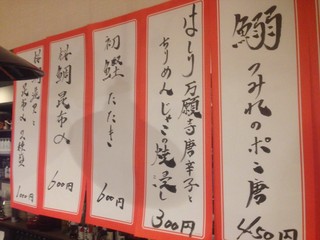 鰯つみれのポン唐
450円
はしり万願寺唐辛子と
ちりめんじゃこの焼浸し
300円
初鰹たたき
600円
桜鯛昆布〆
600円